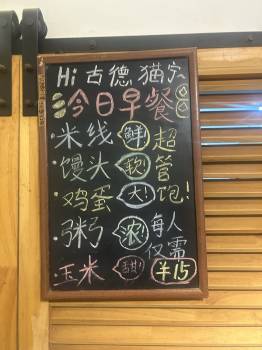 Hi 古德猫宁
今日早餐
·米线 鲜 超
·馒头 软! 管
·鸡蛋 大! 饱!
·粥 浓! 每人
仅需
·玉米 甜! ¥15